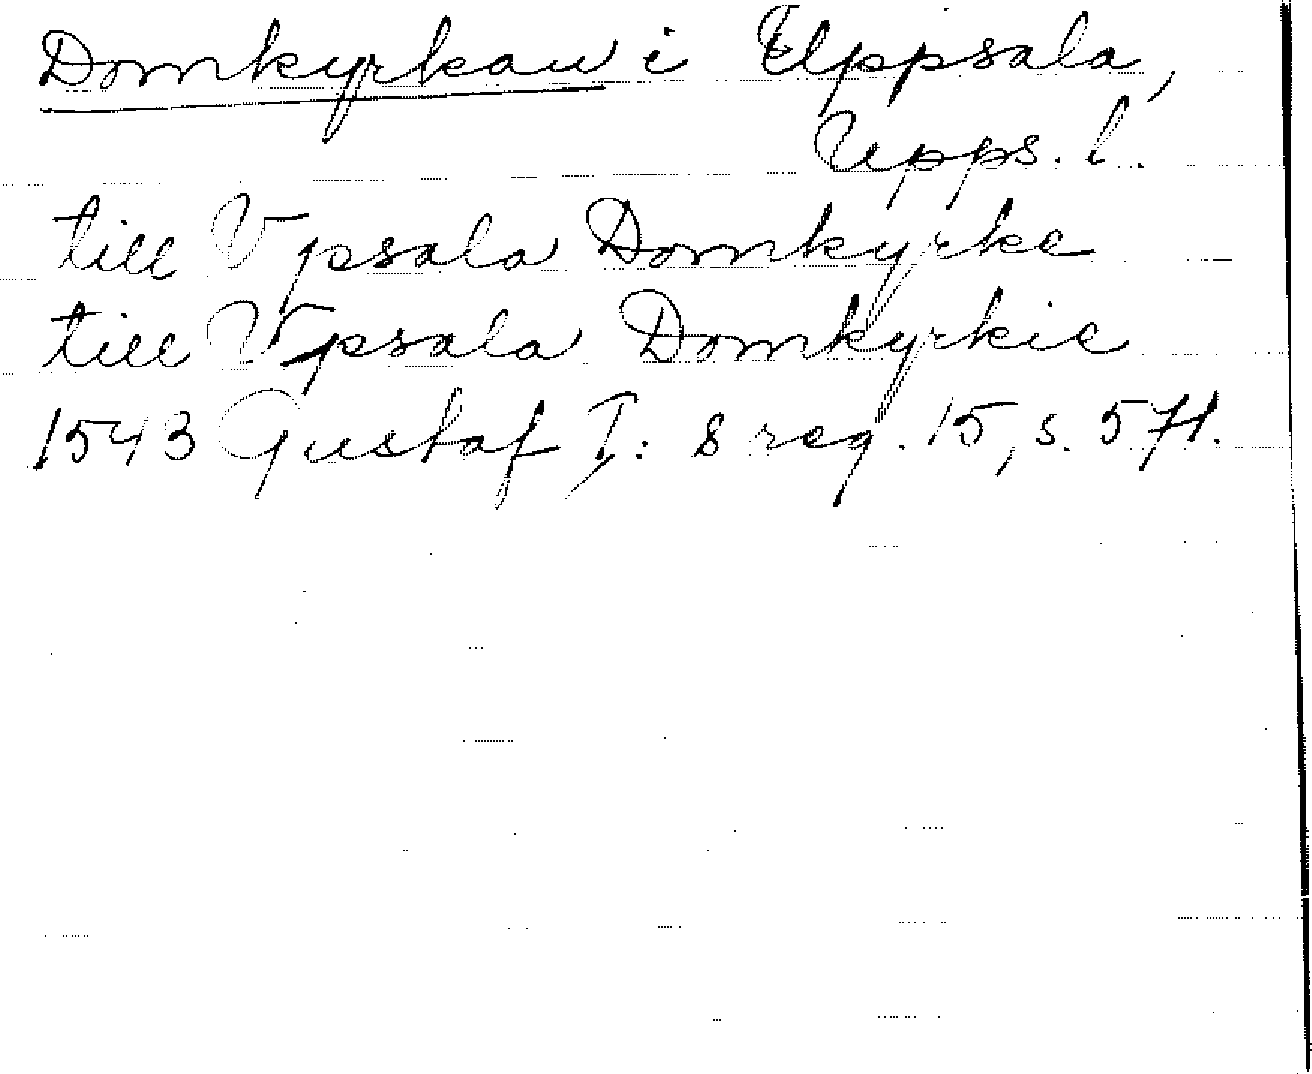 Domkyrkan i Uppsala,
Upps. l.
till Vpsala Domkyrke
till Vpsala Domkyrkie
1543 Gustaf I: s reg. 15, s. 571.